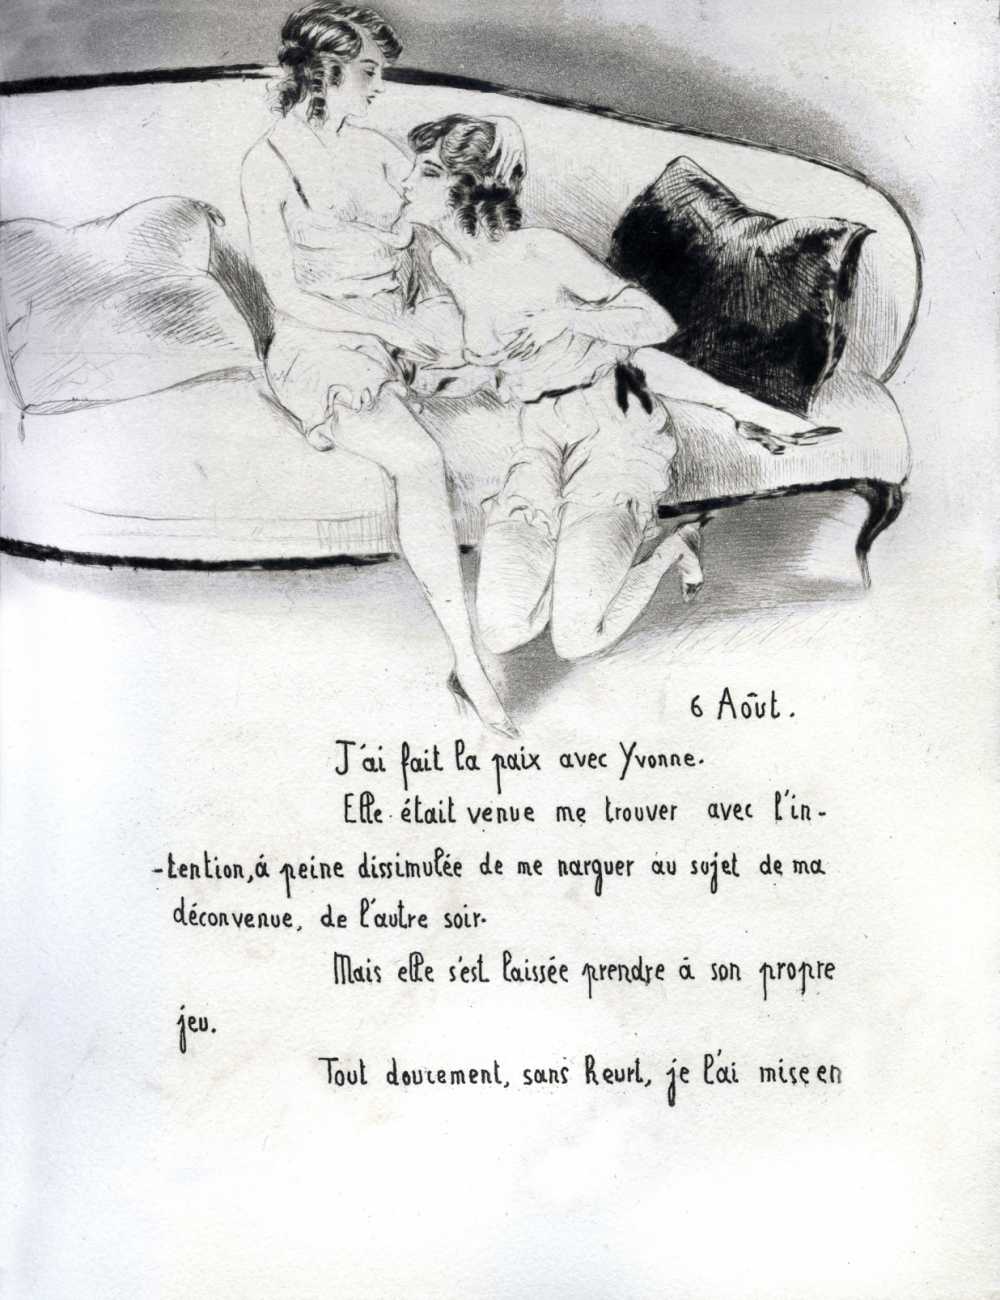 6 Août.
J'ai fait la paix avec Yvonne.
Elle était venue me trouver avec l'in-
-tention, á peine dissimulée de me narguer au sujet de ma
déconvenue, de l'autre soir.
Mais elle s'est laissée prendre á son propre
jeu.
Tout doucement, sans heurt, je l'ai mise en